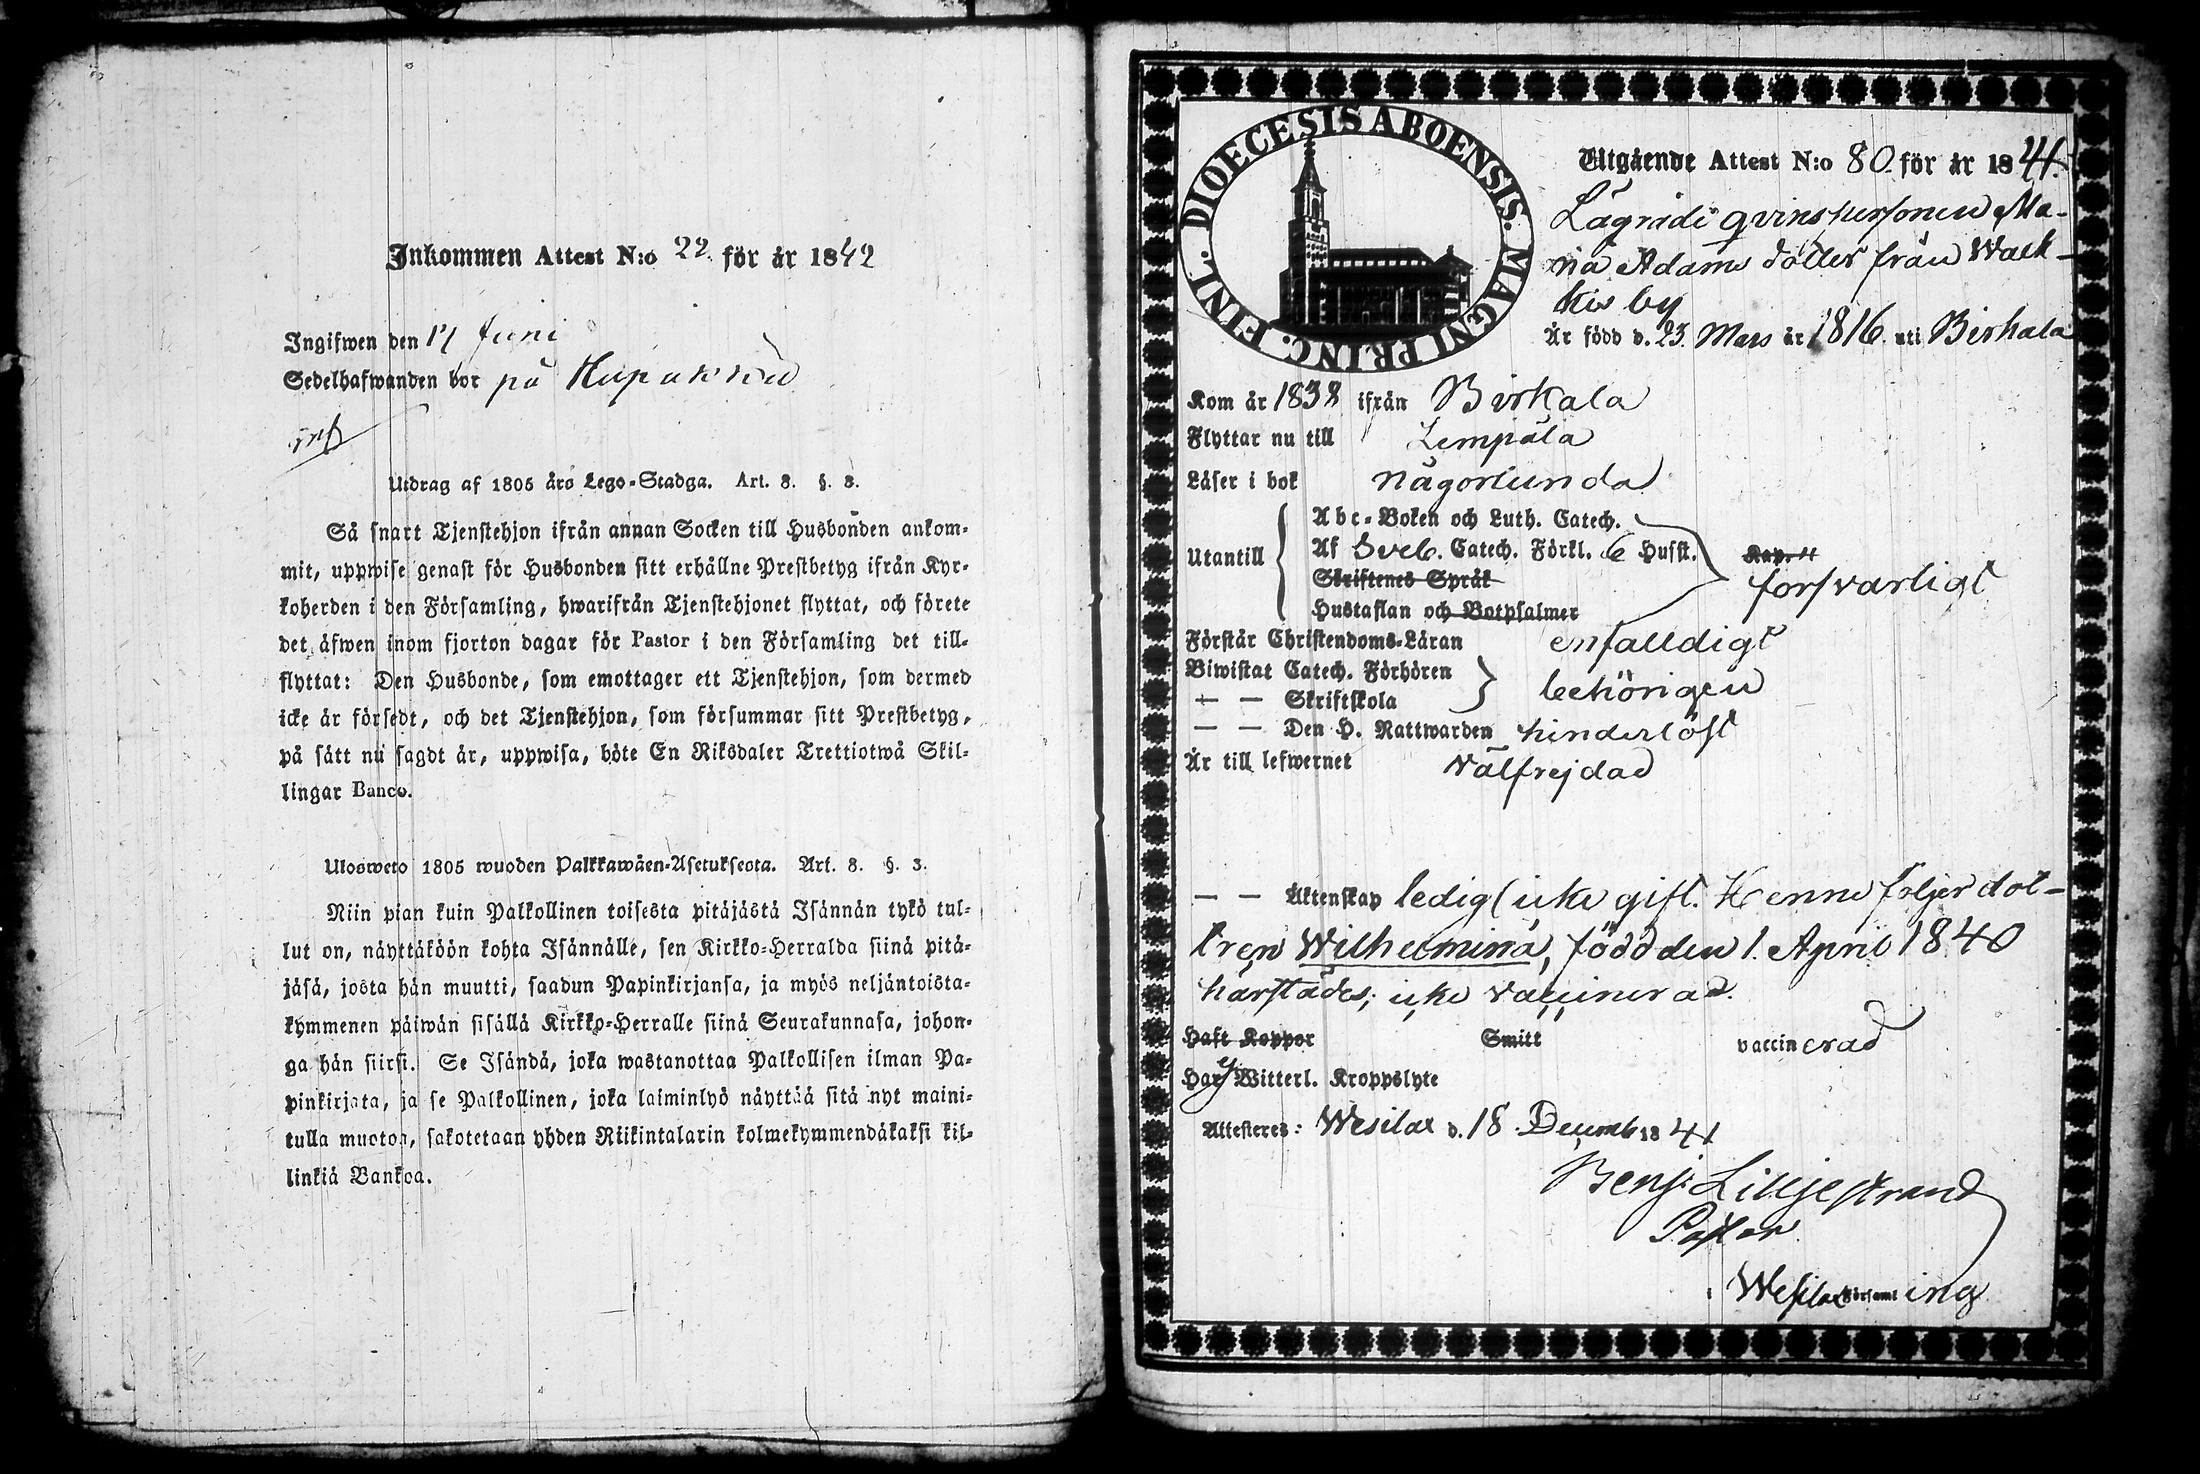 Inkommen Attest N:o 22. för år 1842
Ingifwen den 17 Juni
Sedelhafwanden bor på
inf
Utdrag af 1805 års Lego-Stadga. Art. 8. §. 3.
Så snart Tjenstehjon ifrån annan Socken till Husbonden ankom-
mit, uppwise genast för Husbonden sitt erhållne Prestbetyg ifrån Kyr-
koherden i den Församling, hwarifrån Tjenstehjonet flyttat, och förete
det äfwen inom fjorton dagar för Pastor i den Församling det till-
flyttat: Den Husbonde, som emottager ett Tjenstehjon, som dermed
icke är försedt, och det Tjenstehjon, som försummar sitt Prestbetyg,
på sätt nu sagdt är, uppwisa, böte En Riksdaler Trettiotwå Skil-
lingar Banco.
Ulosweto 1805 wuoden Palkkawäen-Asetuksesta. Art. 8. §. 3.
Niin pian kuin Palkollinen toisesta pitäjästä Isännän tykö tul-
lut on, näyttäköön kohta Isännälle, sen Kirkko-Herralda siinä pitä-
jäsä, josta hän muutti, saadun Papinkirjansa, ja myös neljäntoista-
kymmenen päiwän sisällä Kirkko-Herralle siinä Seurakunnasa, johon-
ga hän siirsi. Se Isändä, joka wastanottaa Palkollisen ilman Pa-
pinkirjata, ja se Palkollinen, joka laiminlyö näyttää sitä nyt maini-
tulla muoton, sakotetaan yhden Riikintalarin kolmekymmendäkaksi kil-
linkiä Bankoa.
DIOECESIS ABOENSIS. MAGNI PRINC. FINL.
Utgående Attest N:o 80. för år 1841.
Lägrade qvinspersonen Ma-
ria Adams dotter från Wack-
kis by
Är född d. 23. Mars år 1816. uti Birkala
Kom år 1838 ifrån Birkala
Flyttar nu till Lempäla
Läser i bok någorlunda
Utantill
Abc-Boken och Luth. Catech.
Af Sveb. Catech. Förkl. 6 Husst. Kap.
Skriftenes Språk försvarligt
Hustaflan och Botpsalmer
Förstår Christendoms-Läran enfalldigt
Biwistat Catech. Förhören
— — Skriftskola behörigen
— — Den H. Nattwarden hinderlöst
Är till lefwernet välfrejdad
— — Äktenskap ledig (icke gift. Henne följer dot-
tren Wilhelmina, född den 1. April 1840
härstädes; icke vaccinerad.
Haft Koppor Smitt vaccinerad
Har ej Witterl. Kroppslyte
Attesteres: Wesilax d. 18 Decemb 1841
Benj. Lilljestrand
Pastor
i Wesilax Församling